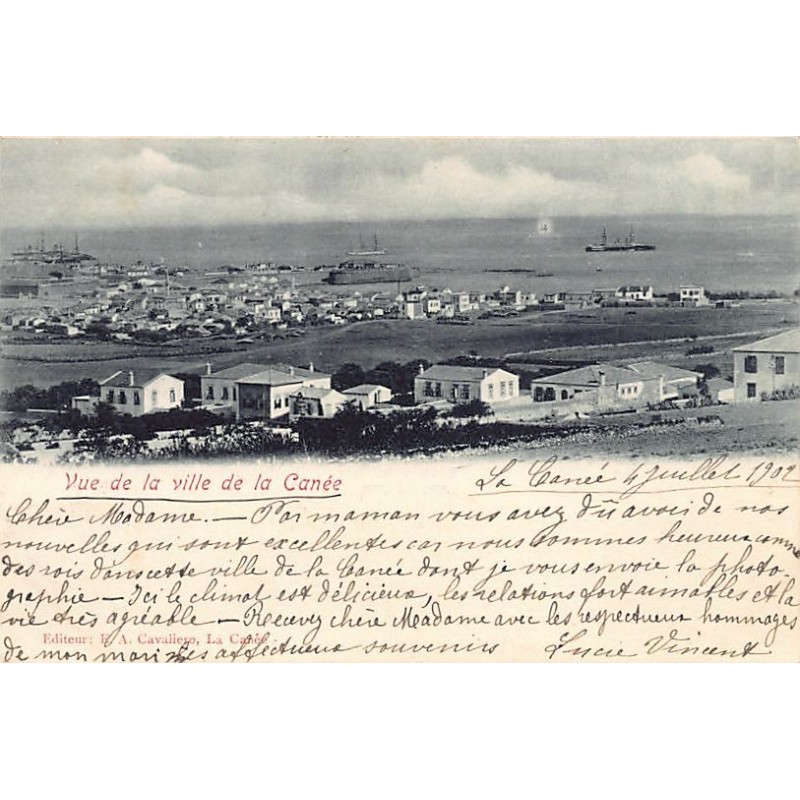 Vue de la ville de la Canée
La Canée 4 juillet 1902
Chère Madame. — Par maman vous avez dû avoir de nos
nouvelles qui sont excellentes car nous sommes heureux comme
des rois dans cette ville de la Canée dont je vous envoie la photo-
graphie — Ici le climat est délicieux, les relations fort aimables et la
vie très agréable — Recevez chère Madame avec les respectueux hommages
Editeur: E. A. Cavaliero, La Canée
de mon mari mes affectueux souvenirs Lucie Vincent